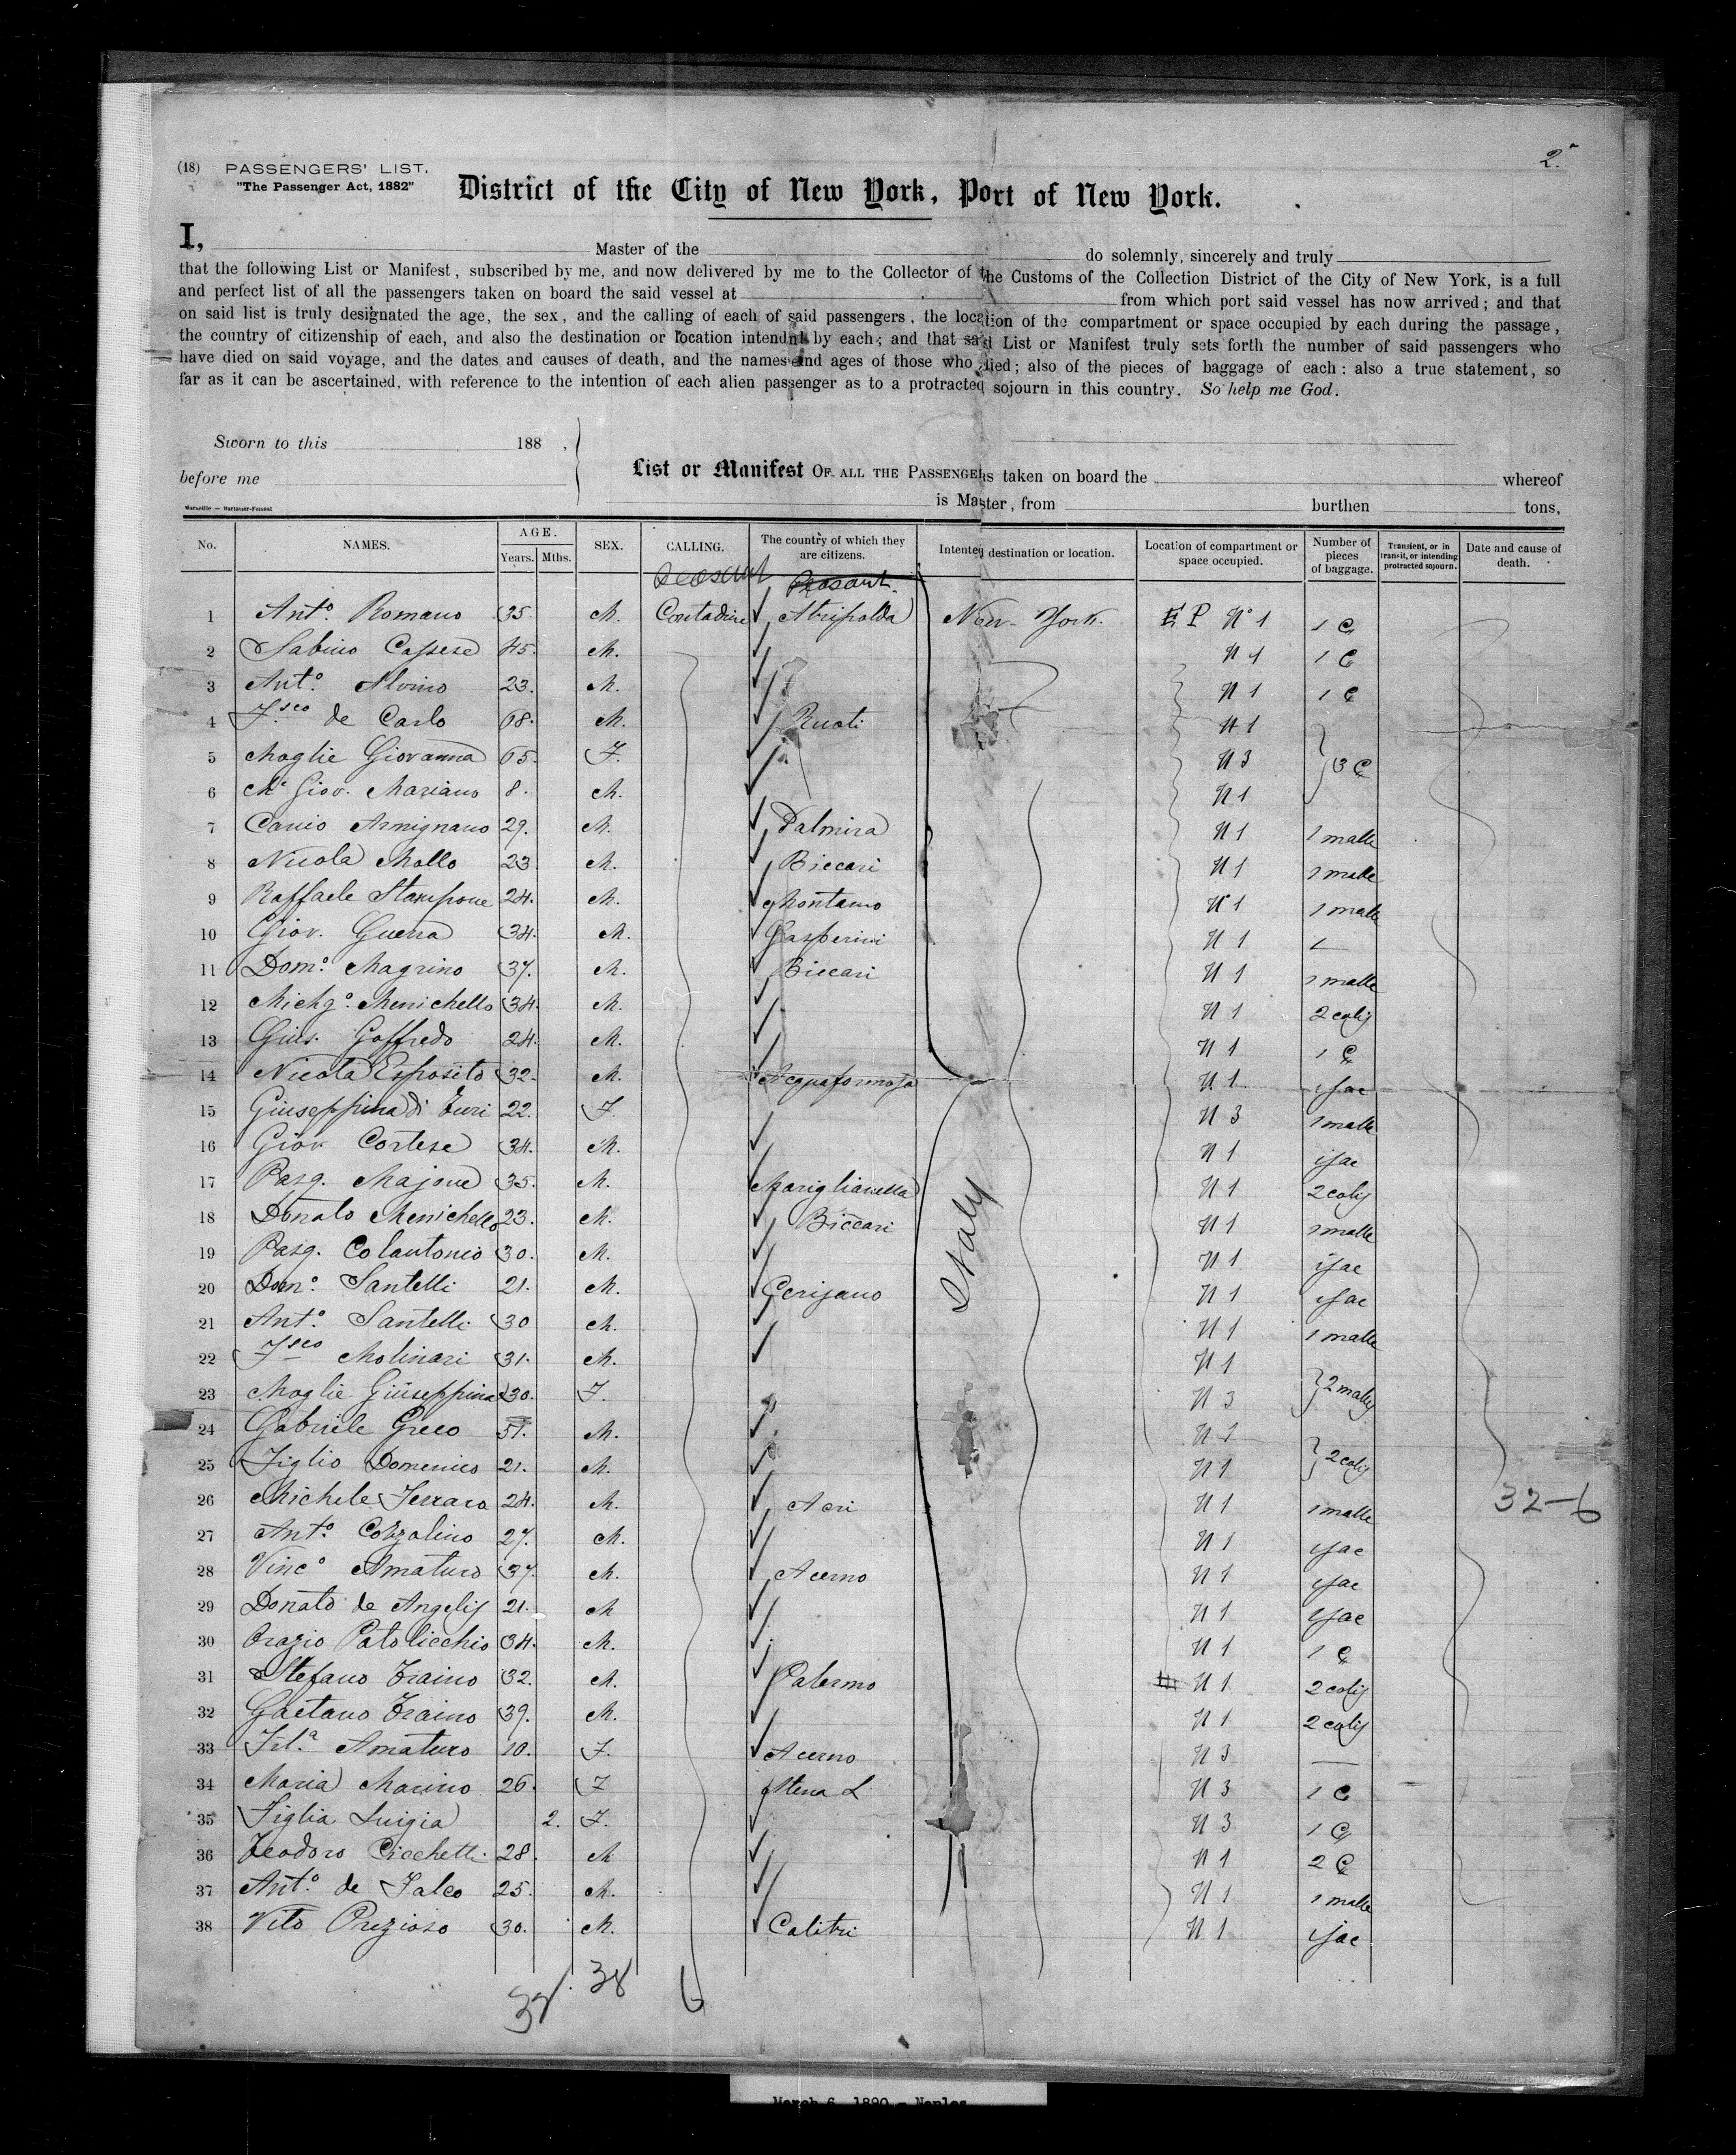 2.
(18) PASSENGERS' LIST.
"The Passenger Act, 1882"
District of the City of New York, Port of New York.
I, Master of the do solemnly, sincerely and truly
that the following List or Manifest, subscribed by me, and now delivered by me to the Collector of the Customs of the Collection District of the City of New York, is a full
and perfect list of all the passengers taken on board the said vessel at from which port said vessel has now arrived; and that
on said list is truly designated the age, the sex, and the calling of each of said passengers, the location of the compartment or space occupied by each during the passage,
the country of citizenship of each, and also the destination or location intended by each; and that said List or Manifest truly sets forth the number of said passengers who
have died on said voyage, and the dates and causes of death, and the names and ages of those who died; also of the pieces of baggage of each: also a true statement, so
far as it can be ascertained, with reference to the intention of each alien passenger as to a protracted sojourn in this country. So help me God.
Sworn to this 188 ,
before me
List or Manifest OF ALL THE PASSENGERS taken on board the whereof
is Master, from burthen tons,
No. NAMES. AGE. Years. Mths. SEX. CALLING. The country of which they are citizens. Intented destination or location. Location of compartment or space occupied. Number of pieces of baggage. Transient, or in transit, or intending protracted sojourn. Date and cause of death.
Peasant Peasant
1 Ant.o Romano 35. M. Contadine Atripalda New-York. E P No 1 1 C
2 Sabino Cassese 45. M. N 1 1 C
3 Ant.o Alvino 23. M. N 1 1 C
4 F.sco de Carlo 68. M. Ruoti N 1
5 Moglie Giovanna 65. F. N 3 3 C
6 Giov. Mariano 8. M. N 1
7 Canio Armignano 29. M. Palmira N 1 1 malle
8 Nicola Mollo 23 M. Biccari N 1 1 malle
9 Raffaele Stampone 24. M. Montano N 1 1 malle
10 Giov. Guerra 34. M. Gasperini N 1 1
11 Dom.o Magrino 37. M. Biccari N 1 1 malle
12 Michg.o Menichello 34. M. N 1 2 colis
13 Gius. Goffredo 24. M. N 1 1 C
14 Nicola Esposito 32. M. Acquaformosa N 1 1 sac
15 Giuseppina di Turi 22. F. N 3 1 malle
16 Giov Cortese 34. M. N 1 1 sac
17 Pasq. Majone 35. M. Mariglianella N 1 2 colis
18 Donato Menichello 23. M. Biccari N 1 1 malle
19 Pasq. Colantonio 30. M. N 1 1 sac
20 Dom.o Santelli 21. M. Cerisano N 1 1 sac
21 Ant.o Santelli 30 M. N 1 1 malle
22 F.sco Molinari 31. M. N 1
23 Moglie Giuseppina 30. F. N 3 2 malles
24 Gabriele Greco 51. M. N 1
25 Figlio Domenico 21. M. N 1 2 colis
26 Michele Ferraro 24. M. Acri N 1 1 malle 32-6
27 Ant.o Cozzolino 27. M. N 1 1 sac
28 Vinc.o Amaturo 37. M. Acerno N 1 1 sac
29 Donato de Angelis 21. M N 1 1 sac
30 Orazio Patolicchio 34. M. N 1 1 C
31 Stefano Traino 32. M. Palermo N 1 2 colis
32 Gaetano Traino 39. M. N 1 2 colis
33 Amaturo 10. F. Acerno N 3
34 Maria Marino 26. F Atena L. N 3 1 C
35 Figlia Luigia 2. F. N 3 1 C
36 Teodoro Cicchetti 28. M N 1 2 C
37 Ant.o de Falco 25. M. N 1 1 malle
38 Vito Prezioso 30. M. Calitri N 1 1 sac
Italy
38
March 6, 1890 - Naples